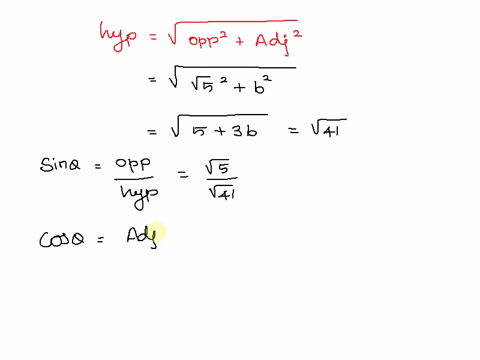 hyp = √opp² + Adj²
= √√5² + b²
= √5 + 3b = √41
Sinθ = opp/hyp = √5/√41
Cosθ = Adj